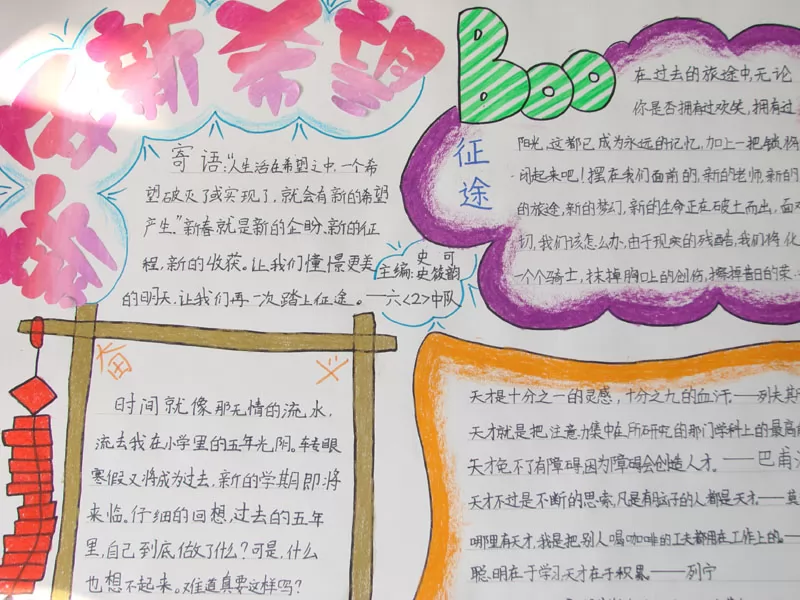 新希望
寄语:“人生活在希望之中,一个希
望破灭了或实现了,就会有新的希望
产生.”新春就是新的企盼、新的征
程,新的收获。让我们憧憬更美
的明天,让我们再一次踏上征途。——六<2>中队
主编:史可
史筱韵
Boo
征途
在过去的旅途中,无论
你是否拥有过欢笑,拥有过
阳光,这都已成为永远的记忆,加上一把锁将
闭起来吧!摆在我们面前的,新的老师,新的
的旅途,新的梦幻,新的生命正在破土而出,面对
切,我们该怎么办,由于现实的残酷,我们将化
一个个骑士,抹掉胸口上的创伤,擦掉昔日的荣
奋
时间就像那无情的流水,
流去我在小学里的五年光阴。转眼
寒假又将成为过去,新的学期即将
来临,仔细的回想,过去的五年
里,自己到底做了什么?可是,什么
也想不起来。难道真要这样吗?
天才是十分之一的灵感,十分之九的血汗——列夫
天才就是把注意力集中在所研究的那门学科上的最高
天才免不了有障碍,因为障碍会创造人才。——巴甫
天才不过是不断的思索,凡是有脑子的人都是天才——莫
哪里有天才,我是把别人喝咖啡的工夫都用在工作上的。
聪明在于学习,天才在于积累。——列宁